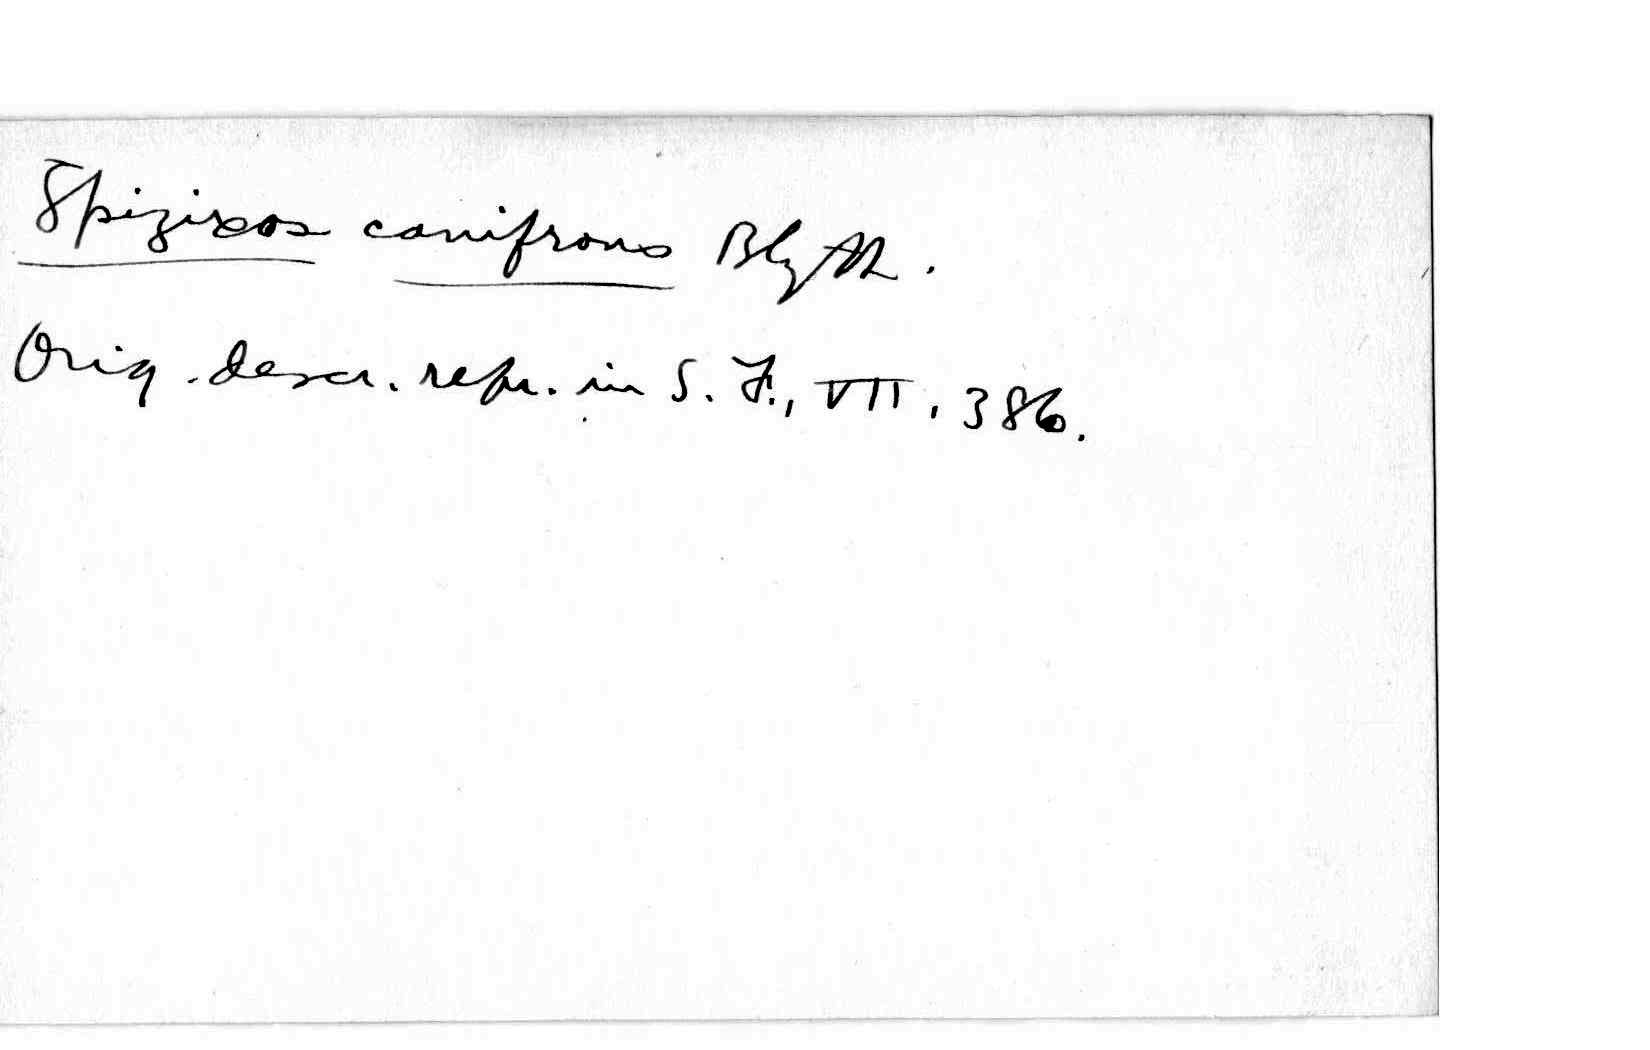 Spizixos canifrons Blyth.
Orig. descr. repr. in S. F., VII, 386.